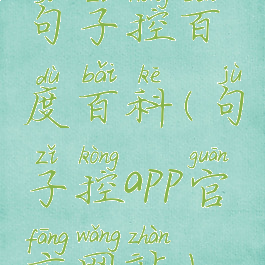 句子控百
dù bǎi kē jù
度百科(句
zǐ kòng guān
子控app官
fāng wǎng zhàn
方网站)